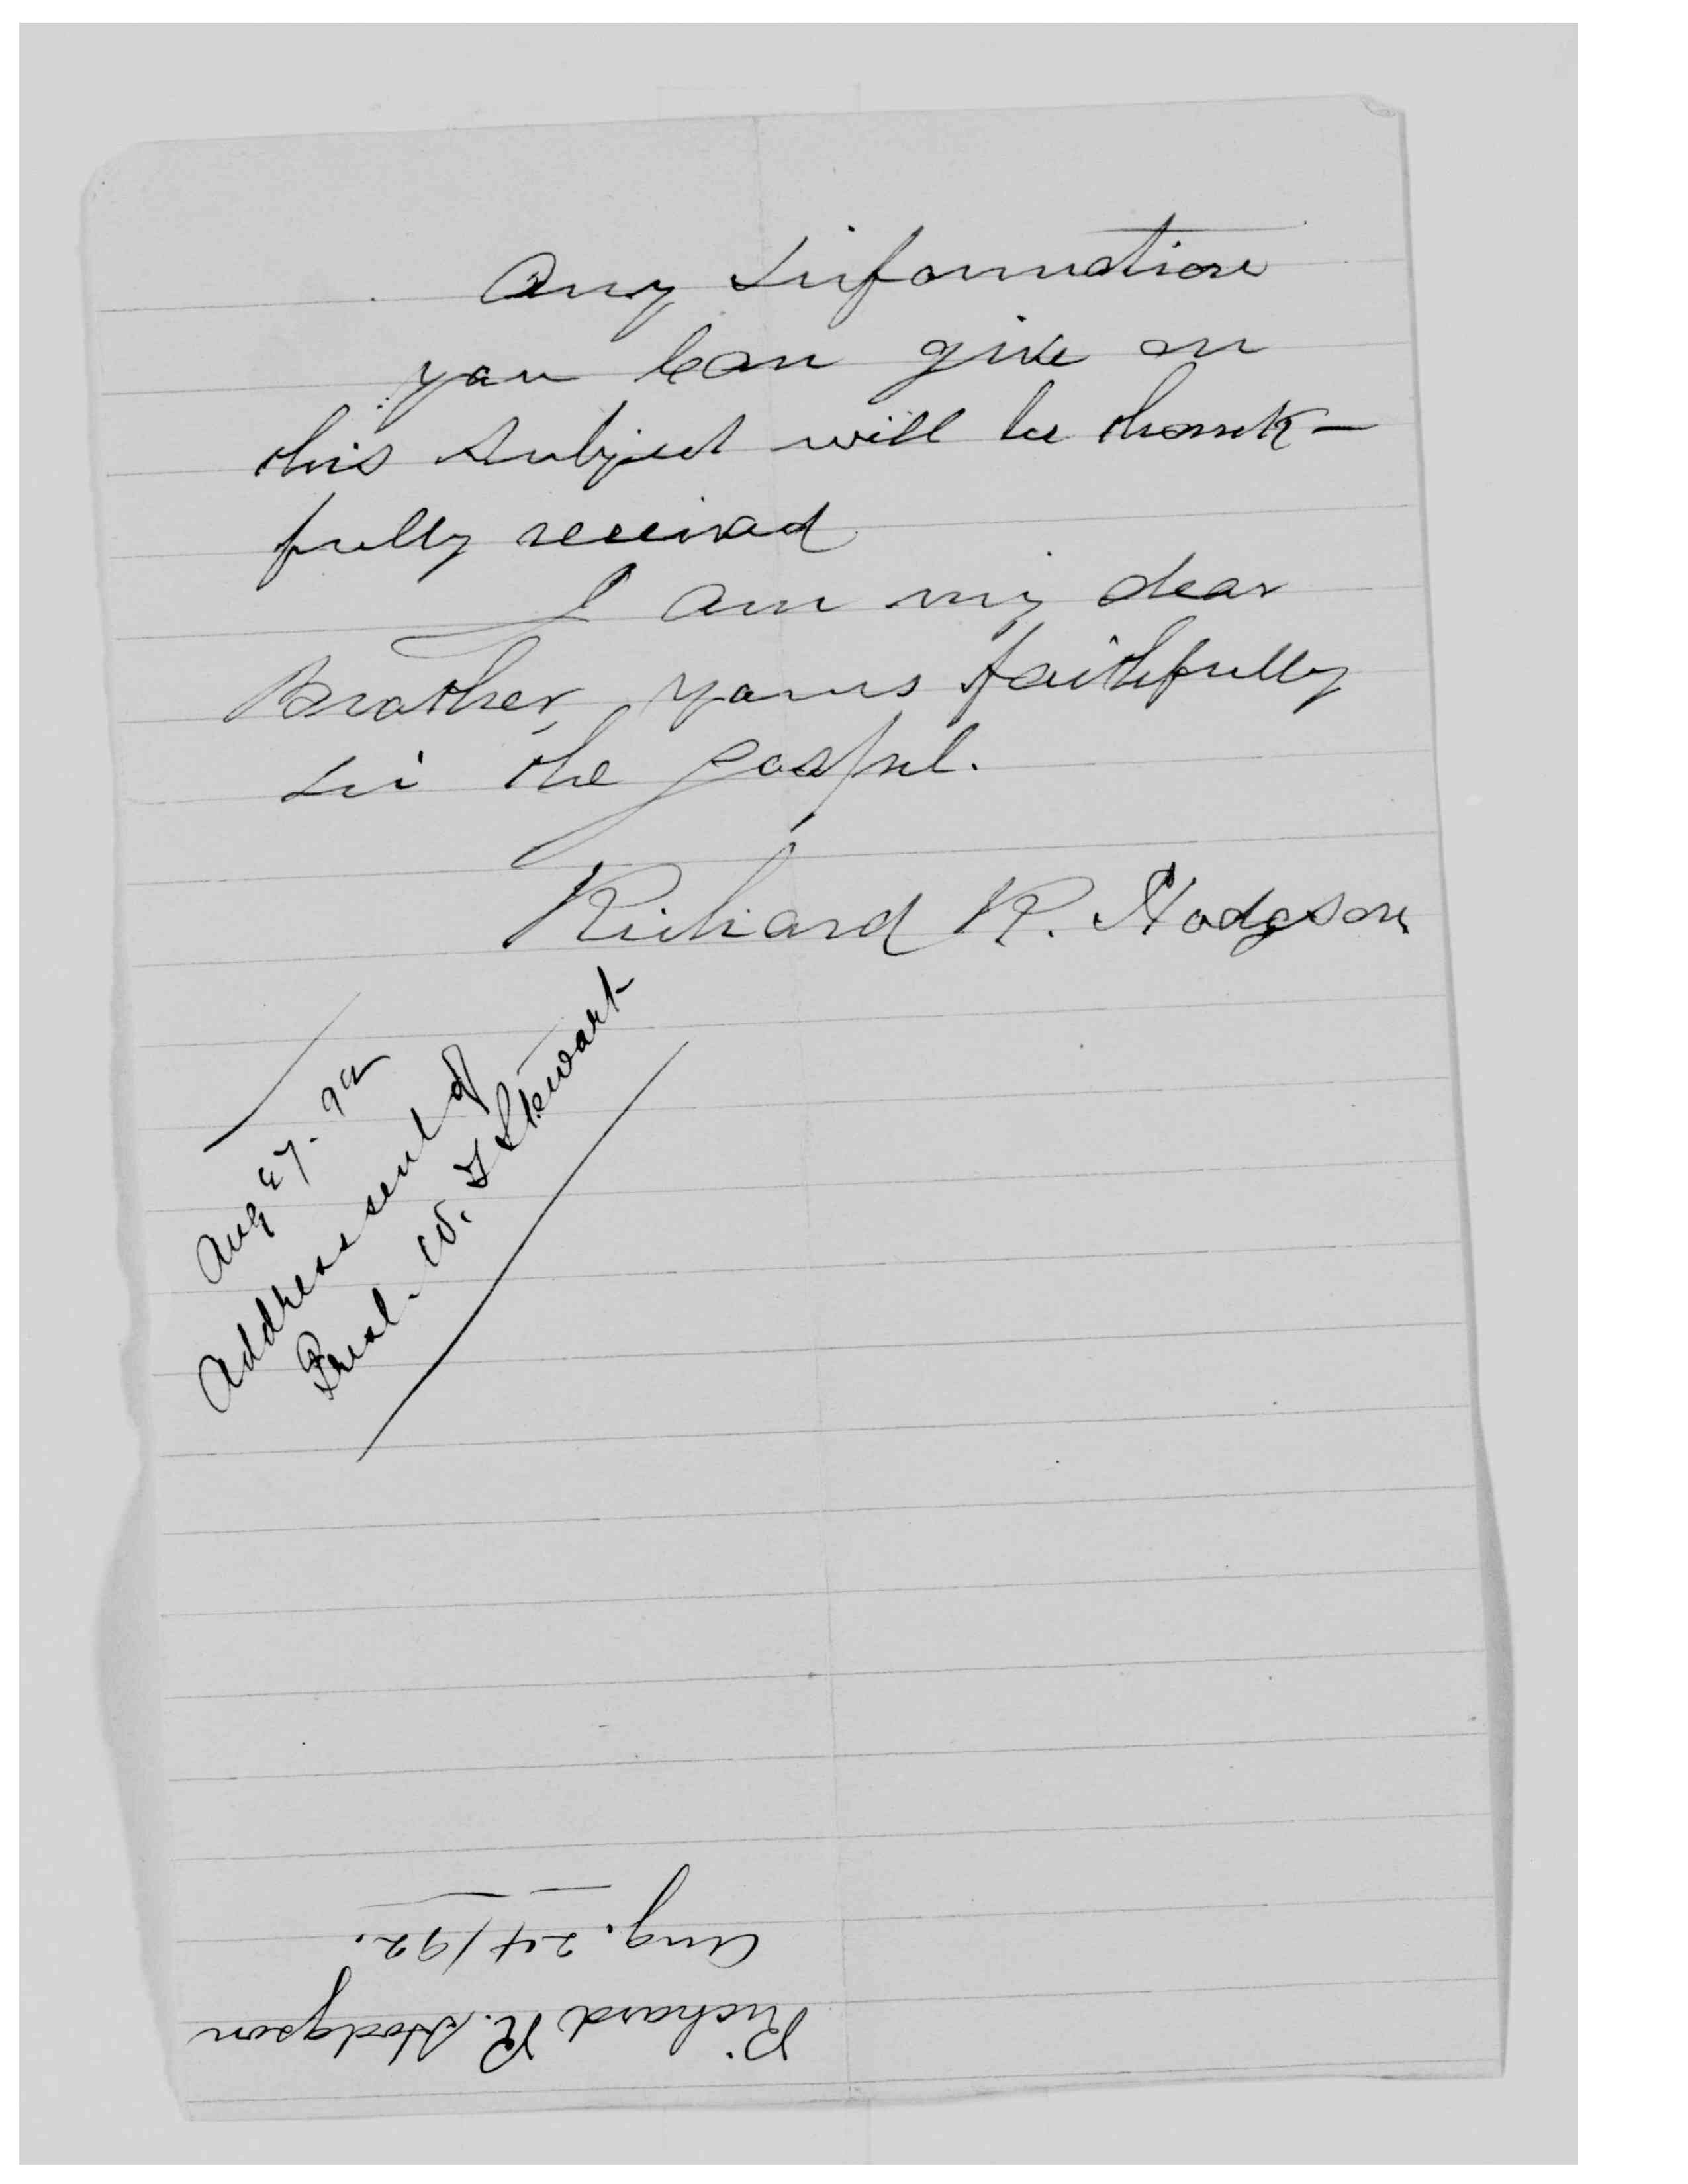 Any Information
you can give on
this subject will be thank-
fully received
I am my dear
Brother, yours faithfully
in the gospel.
Richard R. Hodgson
Aug 27. 92
Address sent of
Prest. W. F Stewart
Richard R. Hodgson
Aug. 24/92.